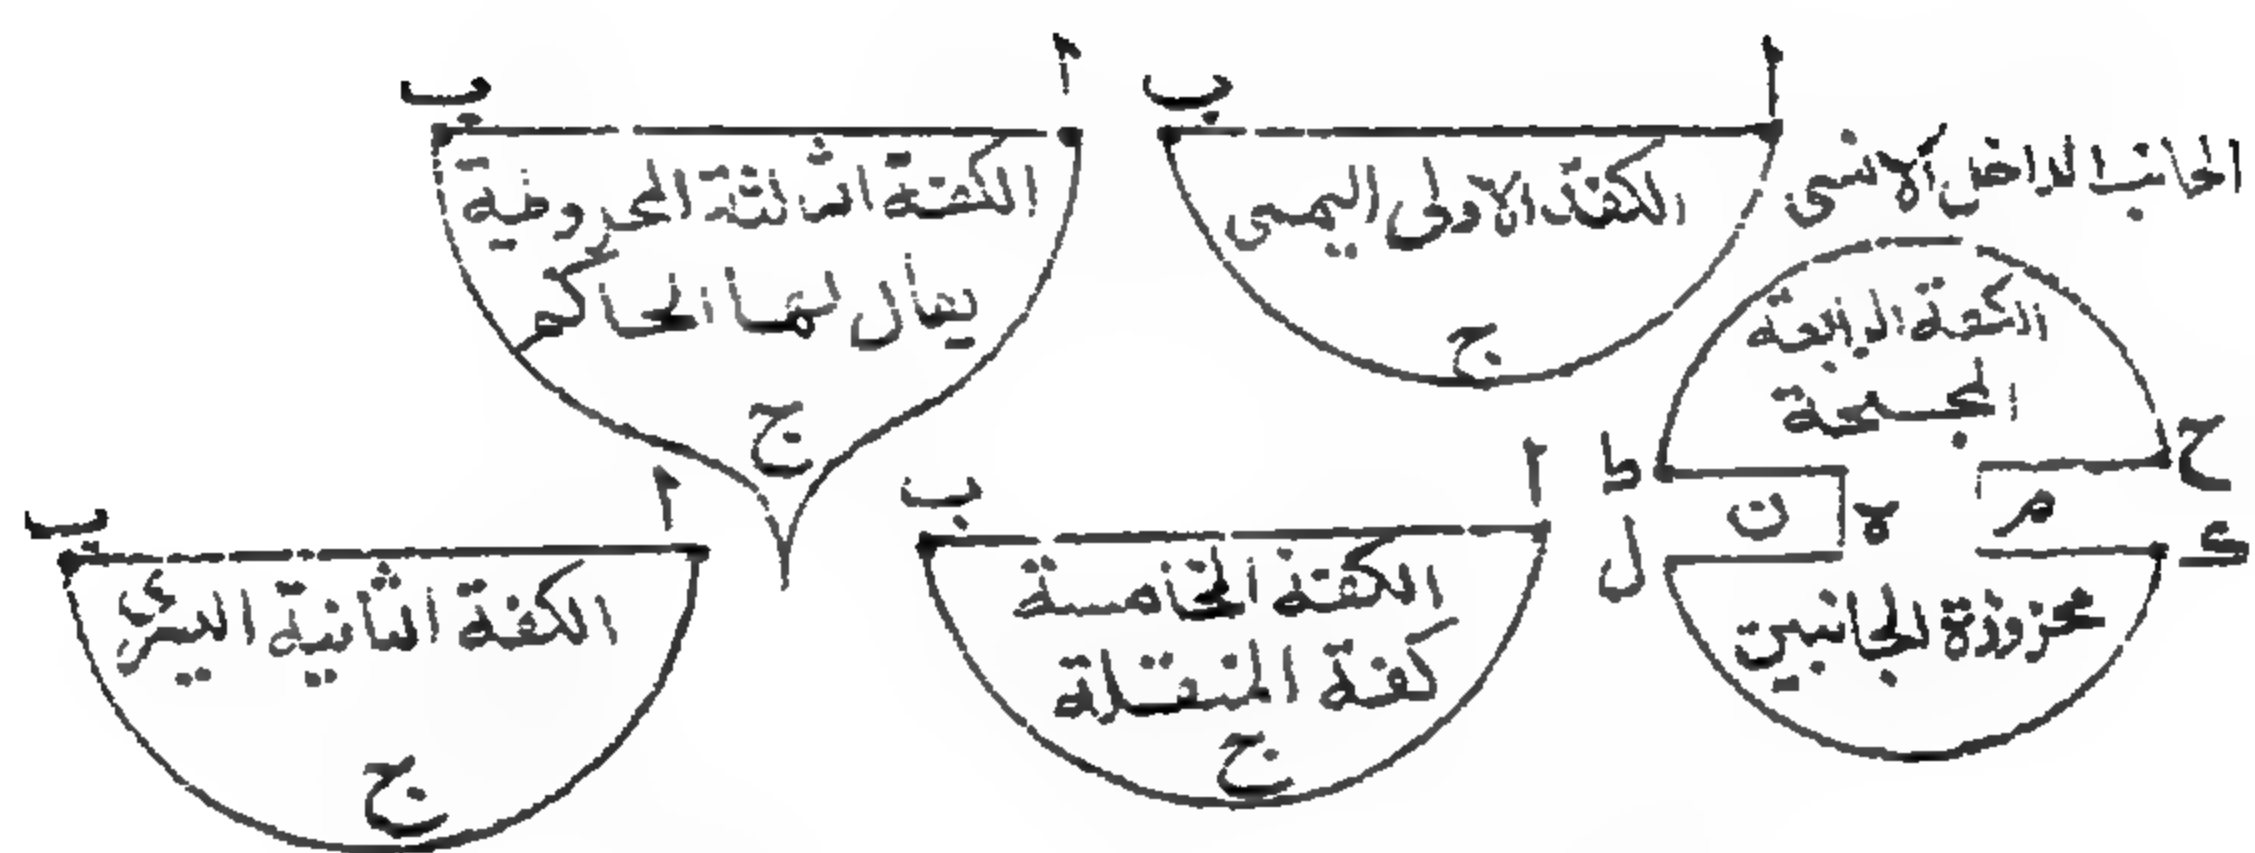 ا
ب
الكفة الاولى اليمنى
ج
الجانب الداخل الانسى
ا
ب
الكفة الثالثة المخروطية
يقال لها الحاكم
ج
الكفة الرابعة
المجنحة
ح
ط
م
ه
ن
ك
ل
محزوزة الجانبين
ا
ب
الكفة الخامسة
كفة المنقلة
ج
ا
ب
الكفة الثانية اليسرى
ج